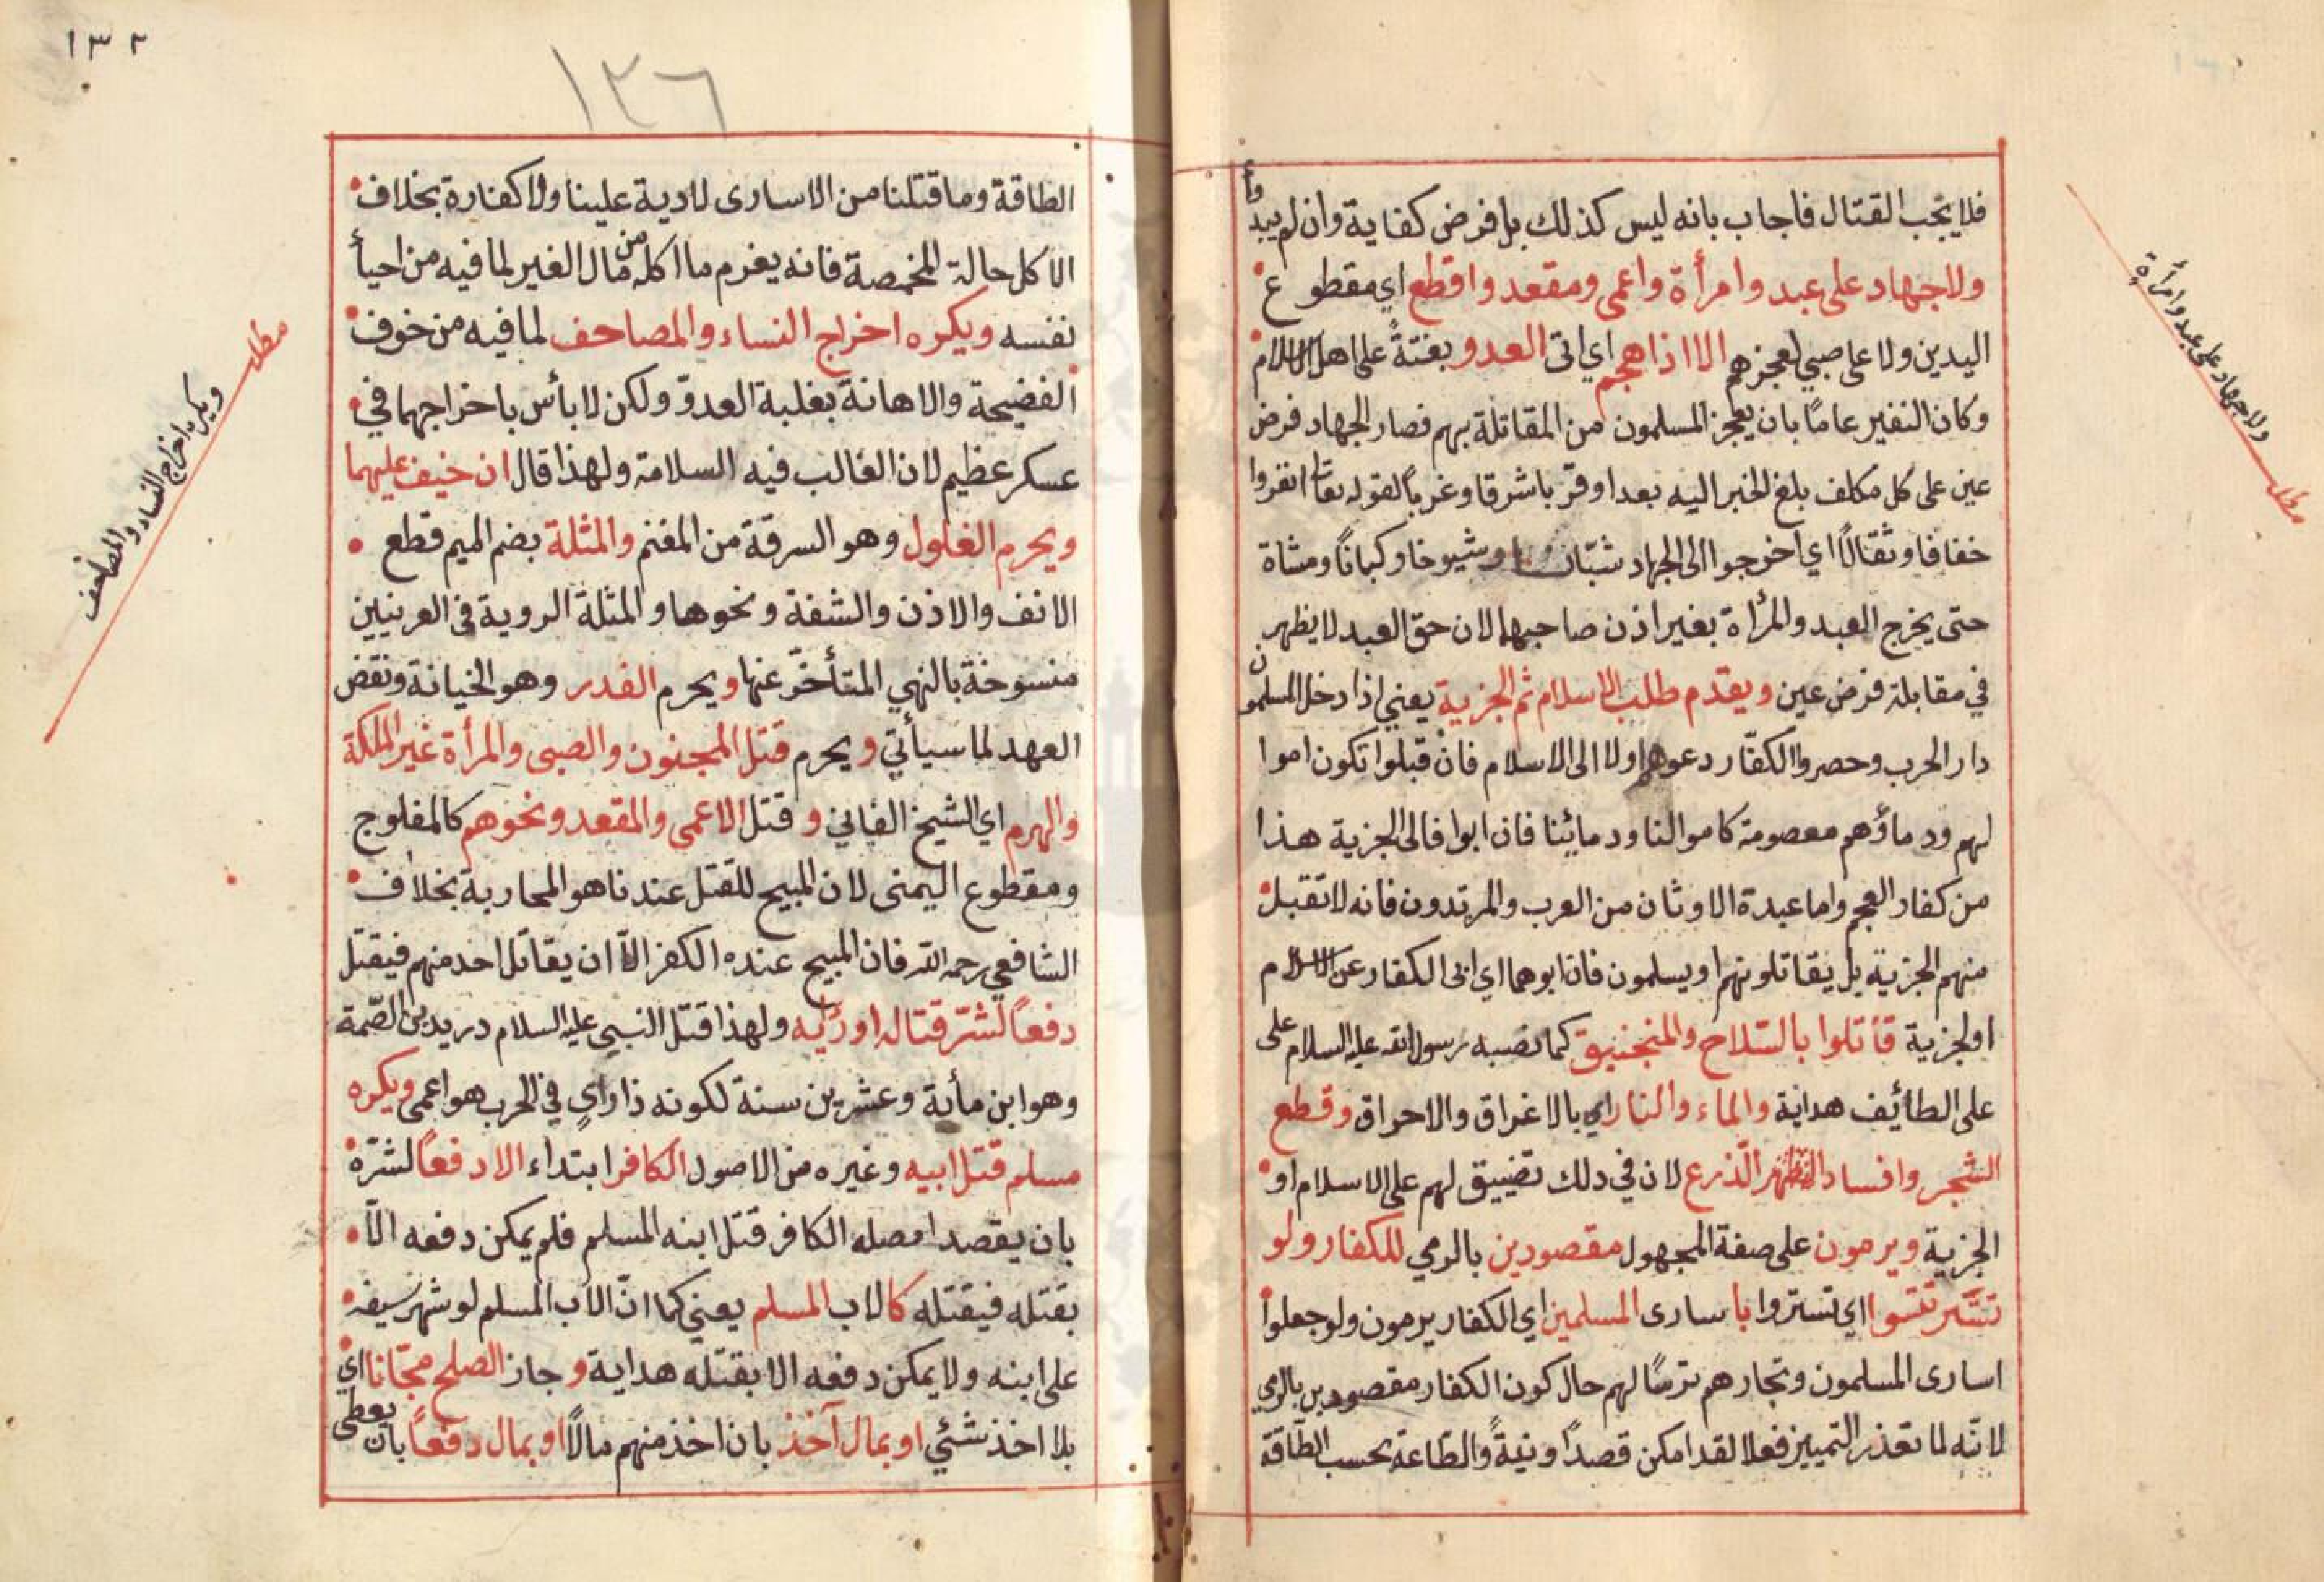 فلا يجب القتال فاجاب بانه ليس كذلك بل فرض كفاية وان لم يبدوأ
ولا جهاد على عبد وامرأة واعمى ومقعد واقطع اي مقطوع
اليدين ولا على صبي لعجزهم الا اذا هجم اي اتى العدو بغتةً على اهل الاسلام
وكان النفير عامًا بان يعجز المسلمون من المقاتلة بهم فصار الجهاد فرض
عين على كل مكلف بلغ الخبر اليه بعدا وقربا شرقا وغربًا لقوله تعالى انفروا
خفافا وثقالًا اي اخرجوا الى الجهاد شبّان وشيوخا وركبانًا ومشاة
حتى يخرج العبد والمرأة بغير اذن صاحبهما لان حق العبد لا يظهر
في مقابلة فرض عين ويقدم طلب الاسلام ثم الجزية يعني اذا دخل المسلمون
دار الحرب وحصروا الكفّار دعوهم اولا الى الاسلام فان قبلوا تكون اموا
لهم ودماؤهم معصومة كاموالنا ودمائنا فان ابوا فالى الجزية هذا
من كفار العجم واما عبدة الاوثان من العرب والمرتدون فانه لا تقبل
منهم الجزية بل يقاتلونهم او يسلمون فان ابوهما اي ابى الكفار عن الاسلام
او الجزية قاتلوا بالسّلاح والمنجنيق كما نصبه رسول الله عليه السلام على
على الطائف هداية والماء والنار اي بالاغراق والاحراق وقطع
الشجر وافساد الذرع لان في دلك تضييق لهم على الاسلام او
الجزية ويرمون على صفة المجهول مقصودين بالرمي للكفار ولو
تترسوا اي تستروا با سارى المسلمين اي الكفار يرمون ولو جعلوا
اسارى المسلمون وتجارهم ترسًا لهم حال كون الكفار مقصودين بالرمي
لانّه لما تعذر التمييز فعلا لقد امكن قصدًا ونيةً والطاعة بحسب الطّاقة
مطلب
ولا جهاد على عبد وامرأة
١٣٢
١٢٦
الطاقة وما قتلنا من الاسارى لا دية علينا ولا كفارة بخلاف
الاكل حالة المخمصة فانه يغرم ما اكله من مال الغير لما فيه من احيأ
نفسه ويكره اخراج النساء والمصاحف لما فيه من خوف
الفضيحة والاهانة بغلبة العدوّ ولكن لا بأس باخراجهما في
عسكر عظيم لان الغالب فيه السلامة ولهذا قال ان خيف عليهما
ويحرم الغلول وهو السرقة من المغنم والمثلة بضم الميم قطع
الانف والاذن والشفة ونحوها والمثلة الروية في العرنيين
منسوخة بالنهي المتأخّر عنها ويحرم الغدر وهو الخيانة ونقض
العهد لما سيأتي ويحرم قتل المجنون والصبى والمرأة غير الملكة
والهرم اي الشيخ الفاني و قتل الاعمى والمقعد ونحوهم كالمفلوج
ومقطوع اليمنى لان المبيح للقتل عندنا هو المحاربة بخلاف
الشافعي رحمه الله فان المبيح عنده الكفر الّا ان يقاتل احد منهم فيقتل
دفعًا لشرّ قتاله او رأيه ولهذا قتل النبي عليه السلام دريد بن الصّمة
وهو ابن مأية وعشرين سنة لكونه ذا رأي في الحرب هو اعمى ويكره
مسلم قتل ابيه وغيره من الاصول الكافر ابتداء الا دفعًا لشرّه
بان يقصد اصله الكافر قتل ابنه المسلم فلم يمكن دفعه الّا
بقتله فيقتله كالاب المسلم يعني كما انّ الاب المسلم لو شهر سيفه
على ابنه ولا يمكن دفعه الا بقتله هداية و جاز الصلح مجّانا اي
بلا اخذ شئي او بمال آخذ بان اخذ منهم مالًا او بمال دفعًا بان يعطى
مطلب
ويكره اخراج النساء والمصاحف